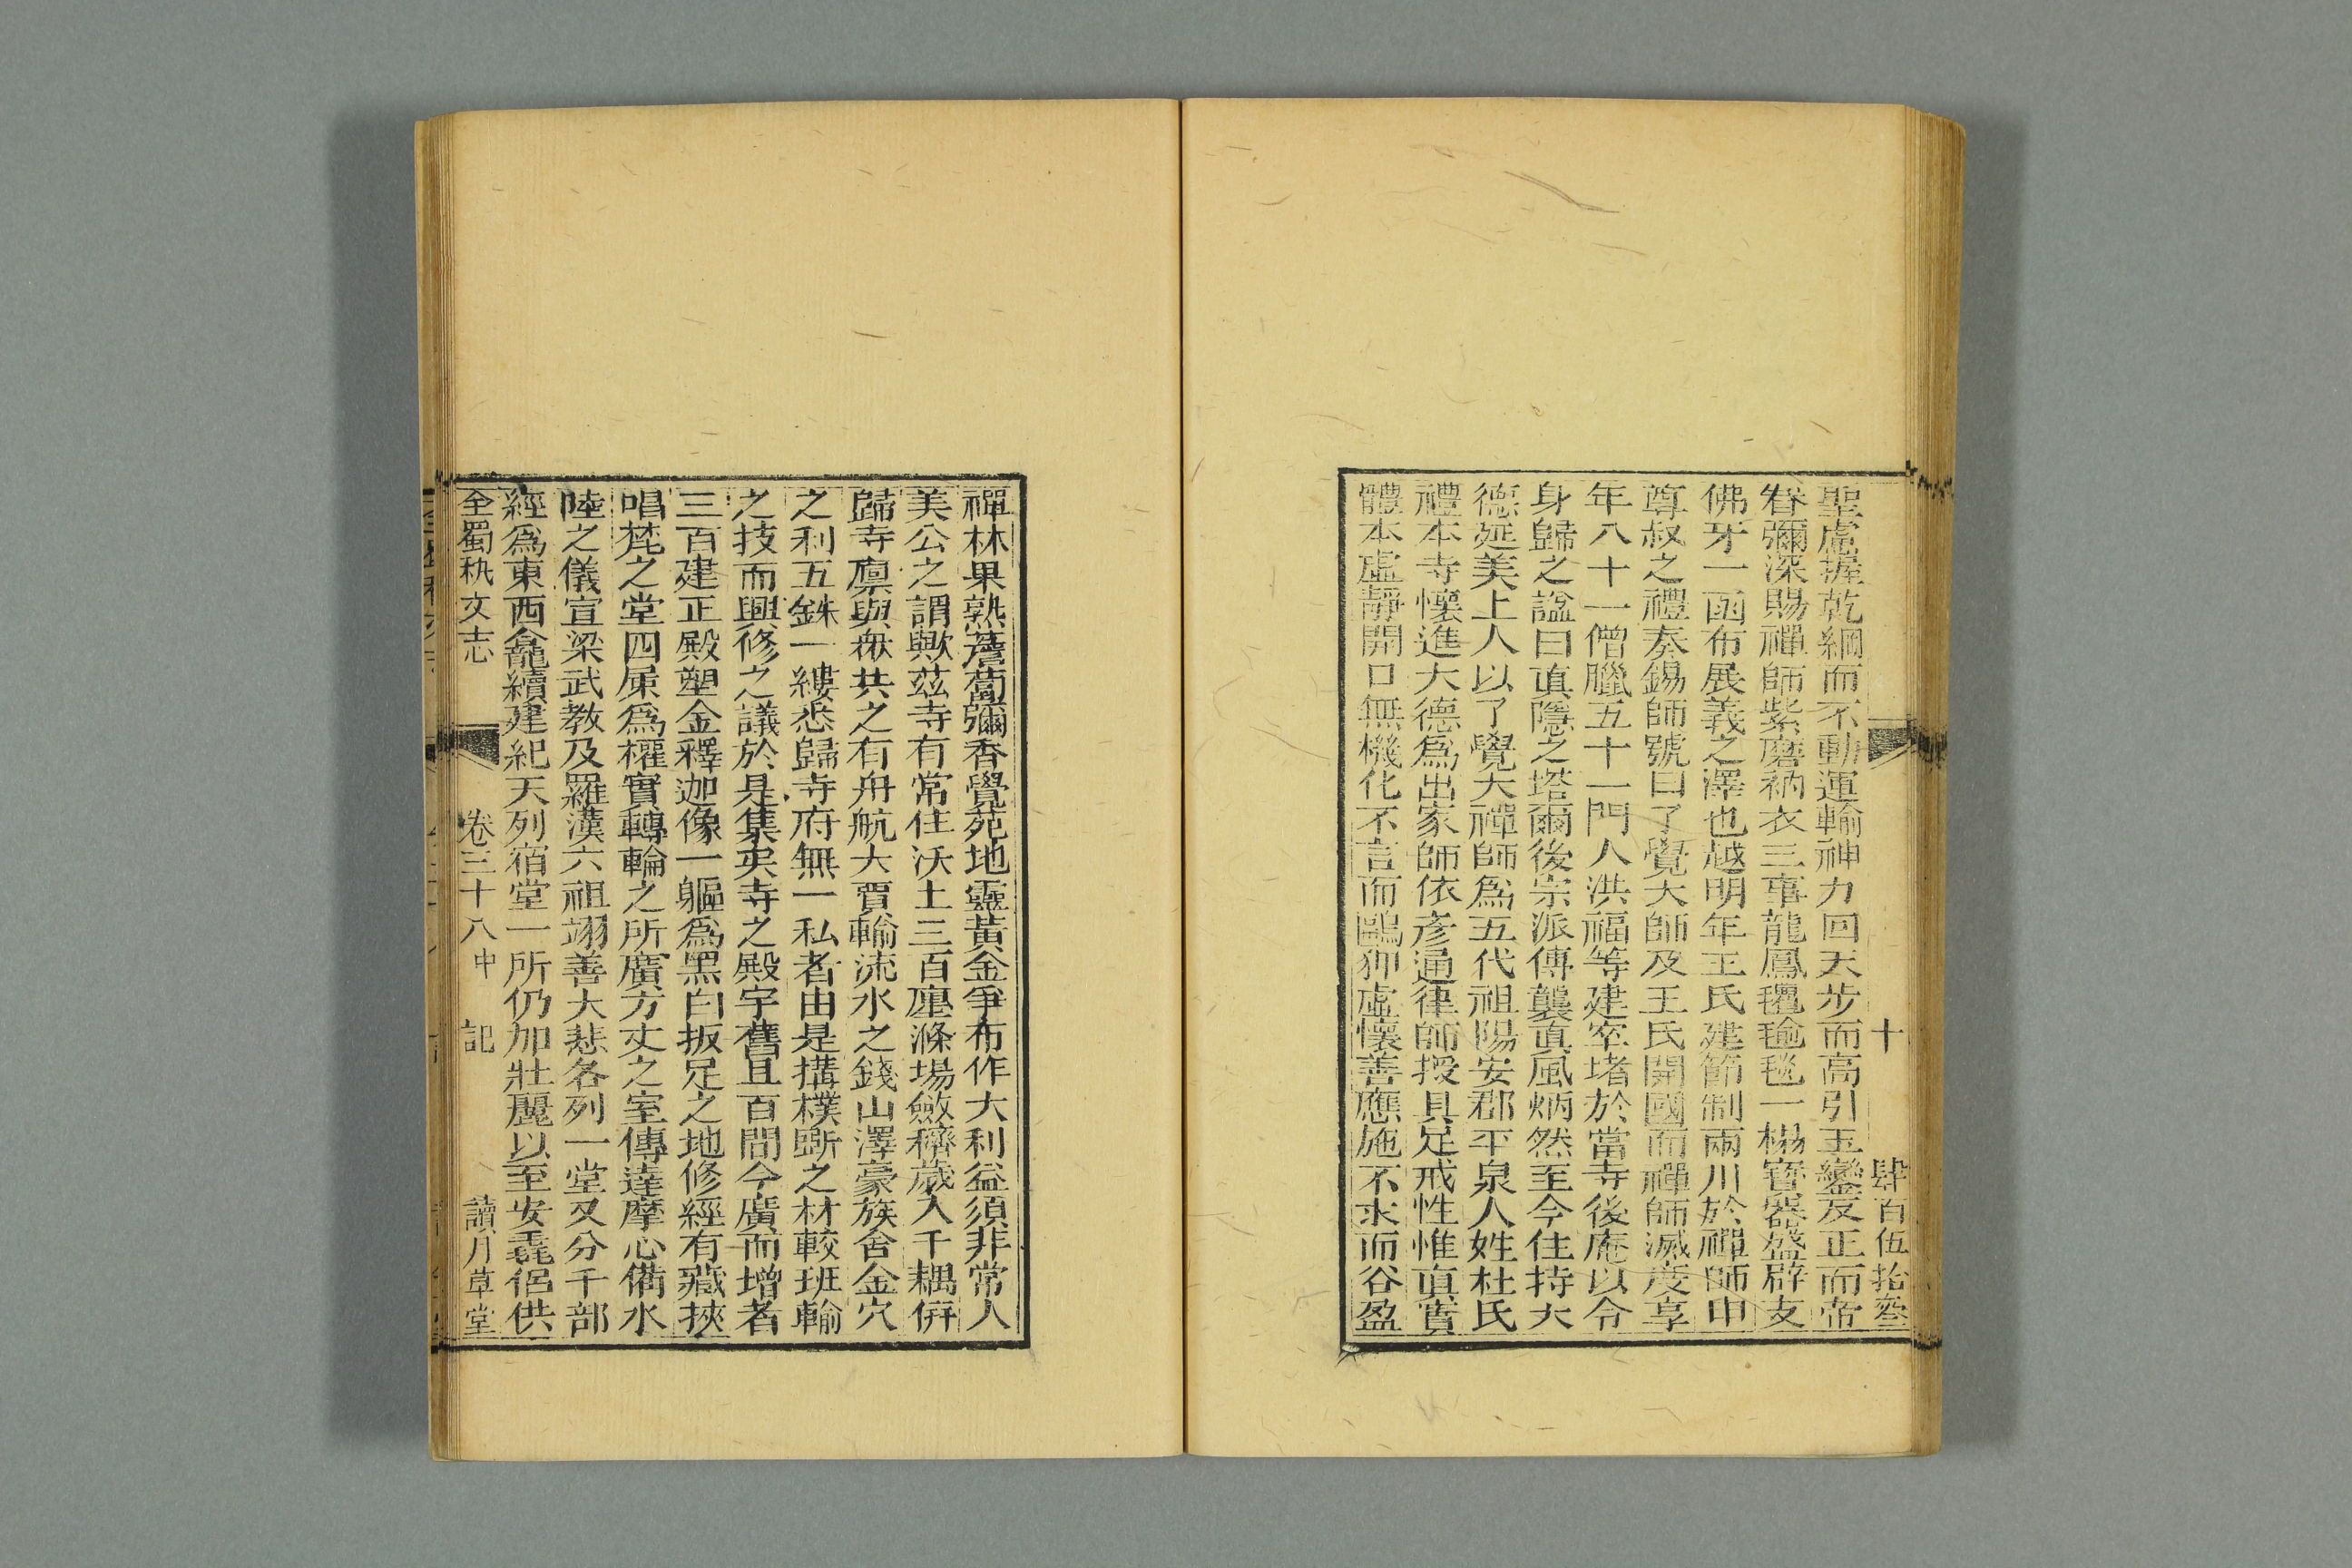 十 肆百伍拾叄
聖慮握乾綱而不動運輪神力回天步而高引玉鑾反正而帝
眷彌深賜禪師紫磨衲衣三事龍鳳氍毺毯一榻寶器盛辟支
佛牙一函布展義之澤也越明年王氏建節制兩川於禪師申
尊叔之禮奏錫師號曰了覺大師及王氏開國而禪師滅度享
年八十一僧臘五十一門人洪福等建窣堵於當寺後庵以令
身歸之諡曰眞隱之塔爾後宗派傳襲眞風炳然至今住持大
德延美上人以了覺大禪師爲五代祖陽安郡平泉人姓杜氏
禮本寺懷進大德爲出家師依彥通律師授具足戒性惟眞實
體本虛靜開口無機化不言而鷗狎虛懷善應施不求而谷盈
禪林果熟薝蔔彌香覺苑地靈黃金爭布作大利益須非常人
美公之謂歟茲寺有常住沃土三百廛滌場斂穧歲入千耦併
歸寺廩與衆共之有舟航大賈輸流水之錢山澤豪族舍金穴
之利五銖一縷悉歸寺府無一私者由是搆樸斲之材較班輸
之技而興修之議於是集矣寺之殿宇舊且百間今廣而增者
三百建正殿塑金釋迦像一軀爲黑白扳足之地修經有藏挾
唱梵之堂四厢爲權實轉輪之所廣方丈之室傳達摩心備水
陸之儀宣梁武教及羅漢六祖翊善大悲各列一堂又分千部
經爲東西龕續建紀天列宿堂一所仍加壯麗以至安毳侶供
全蜀秇文志 卷三十八中 記 讀月草堂